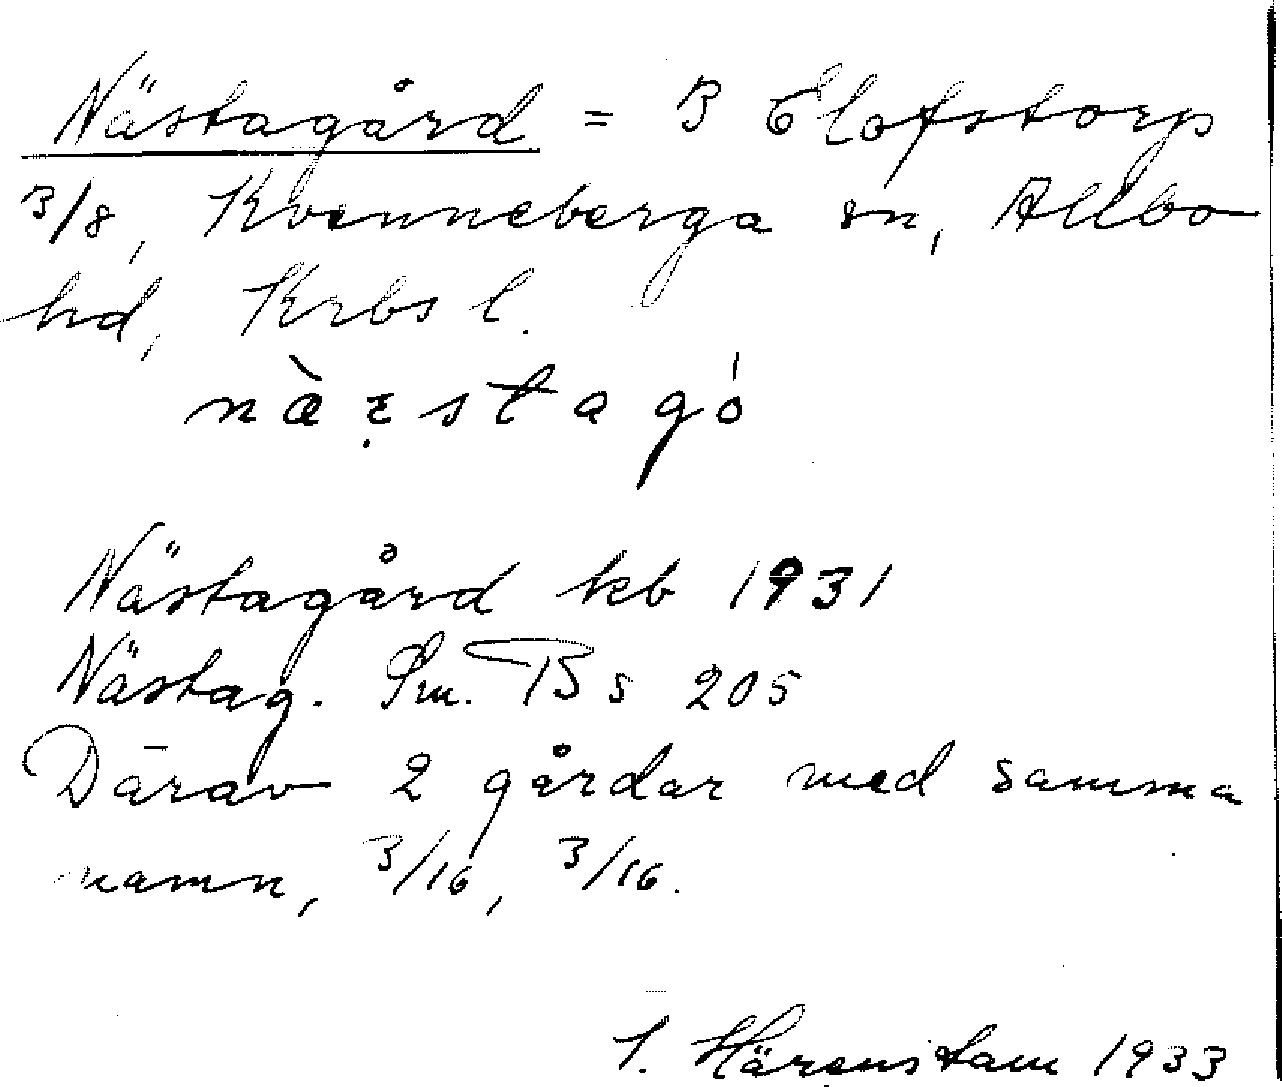 Nästagård = 3 Elofstorp
3/8, Kvenneberga sn, Allbo
hd, Krbs l.
Nästagård kb 1931
Nästag. Sm. TB s 205
Därav 2 gårdar med samma
namn, 3/16, 3/16.
Härenstam 1933